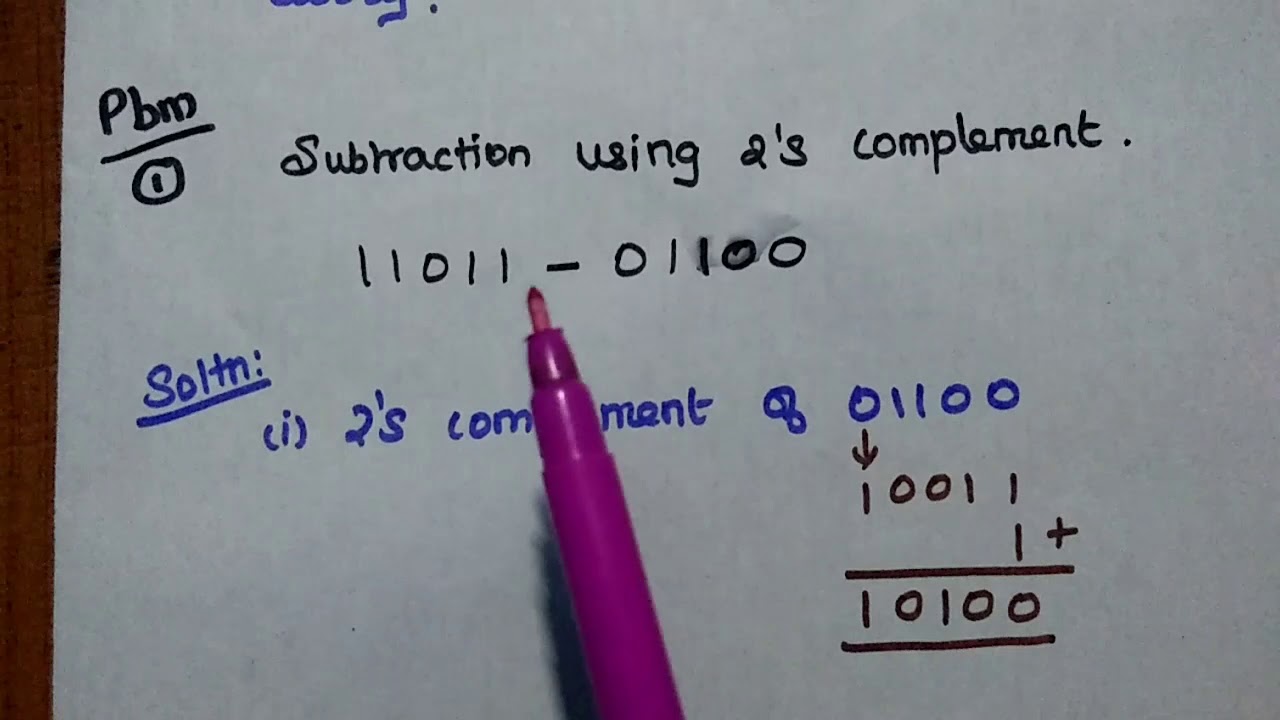 Pbm
①
Subtraction using 2's complement.
11011 - 01100
Soltn:
(i) 2's com ment of 01100
↓
10011
1 +
10100